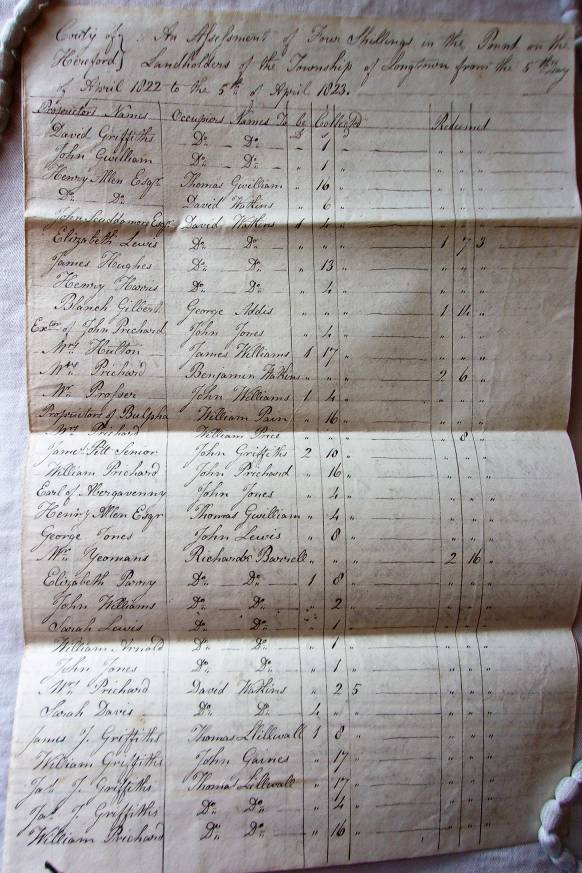 County of } An Assessment of Four Shillings in the Pount on the
Hereford } Landholders of the Township of Longtown from the 5th day
of April 1822 to the 5th of April 1823.
Proprietors Names Occupiers Names To be Collected Redeemed
David Griffiths Do Do " 1 " " " "
John Gwilliam Do Do " 1 " " " "
Henry Allen Esqr Thomas Gwilliam " 16 " " " "
Do Do David Watkins " 6 " " " "
John Scuddamore Esqr David Watkins 1 4 " " " "
Elizabeth Lewis Do Do " " " 1 7 3
James Hughes Do Do " 13 " " " "
Henry Harris Do Do " 4 " " " "
Blanch Gilbert George Addis " " " 1 14 "
Exetor of John Prichard John Jones " 4 " " " "
Mrs Hutton James Williams 1 17 " " " "
Mrs Prichard Benjamin Watkins " " " 2 6 "
Mr Prosser John Williams 1 4 " " " "
Proprietors of Bulpha William Pain " 16 " " " "
Mrs Prichard William Price " " " " 8 "
James Pitt Senior John Griffiths 2 10 " " " "
William Prichard John Prichard " 16 " " " "
Earl of Abergavenny John Jones " 4 " " " "
Henry Allen Esqr Thomas Gwilliam " 4 " " " "
George Jones John Lewis " 8 " " " "
Mrs Yeomans Richard Barrell " " " 2 16 "
Elizabeth Parry Do Do 1 8 " " " "
John Williams Do Do " 2 " " " "
Sarah Lewis Do Do " 1 " " " "
William Arnold Do Do " 1 " " " "
John Jones Do Do " 1 " " " "
Mrs Prichard David Watkins " 2 5 " " "
Sarah Davis Do Do 4 " " " " "
James J. Griffiths Thomas Lillewall 1 8 " " " "
William Griffiths John Gaines " 17 " " " "
Jas. J. Griffiths Thomas Lillwall " 17 " " " "
Jas. J. Griffiths Do Do " 4 " " " "
William Prichard Do Do " 16 " " " "